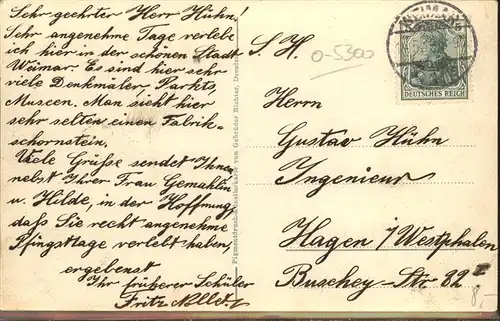 Sehr geehrter Herr Hühn!
Sehr angenehme Tage verlebe
ich hier in der schönen Stadt
Weimar. Es sind hier sehr
viele Denkmäler. Parkts,
Museen. Man sieht hier
sehr selten einen Fabrik-
schornstein.
Viele Grüsse sendet Ihnen
nebst Ihrer Frau Gemahlin
u. Hilde, in der Hoffnung,
daß Sie recht angenehme
Pfingsttage verlebt haben,
ergebenst
Ihr früherer Schüler
Fritz
von Gebrüder Richter, Dresden
DEUTSCHES REICH
0-5300
S. H.
Herrn
Gustav Hühn
Ingenieur
Hagen i/Westphalen
Buschey-Str 82 I
8,-